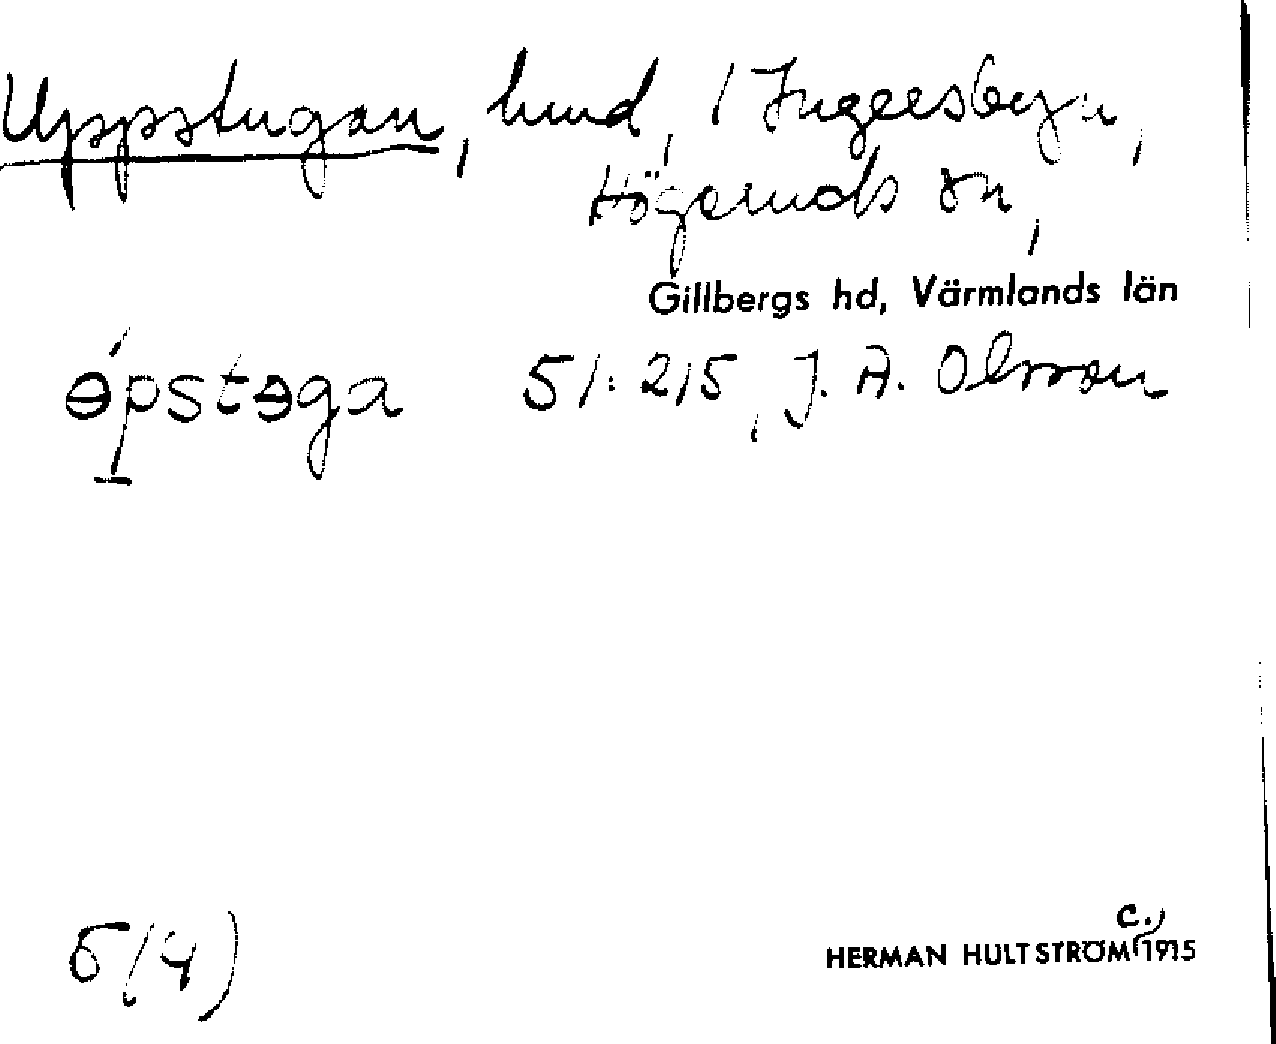 Uppstugan, hmd, 1 Ingersbyn,
Högeruds sn,
Gillbergs hd, Värmlands län
ɵ́pstɵga 51:215, J. A. Olsson
5(4)
c.
HERMAN HULTSTRÖM 1915